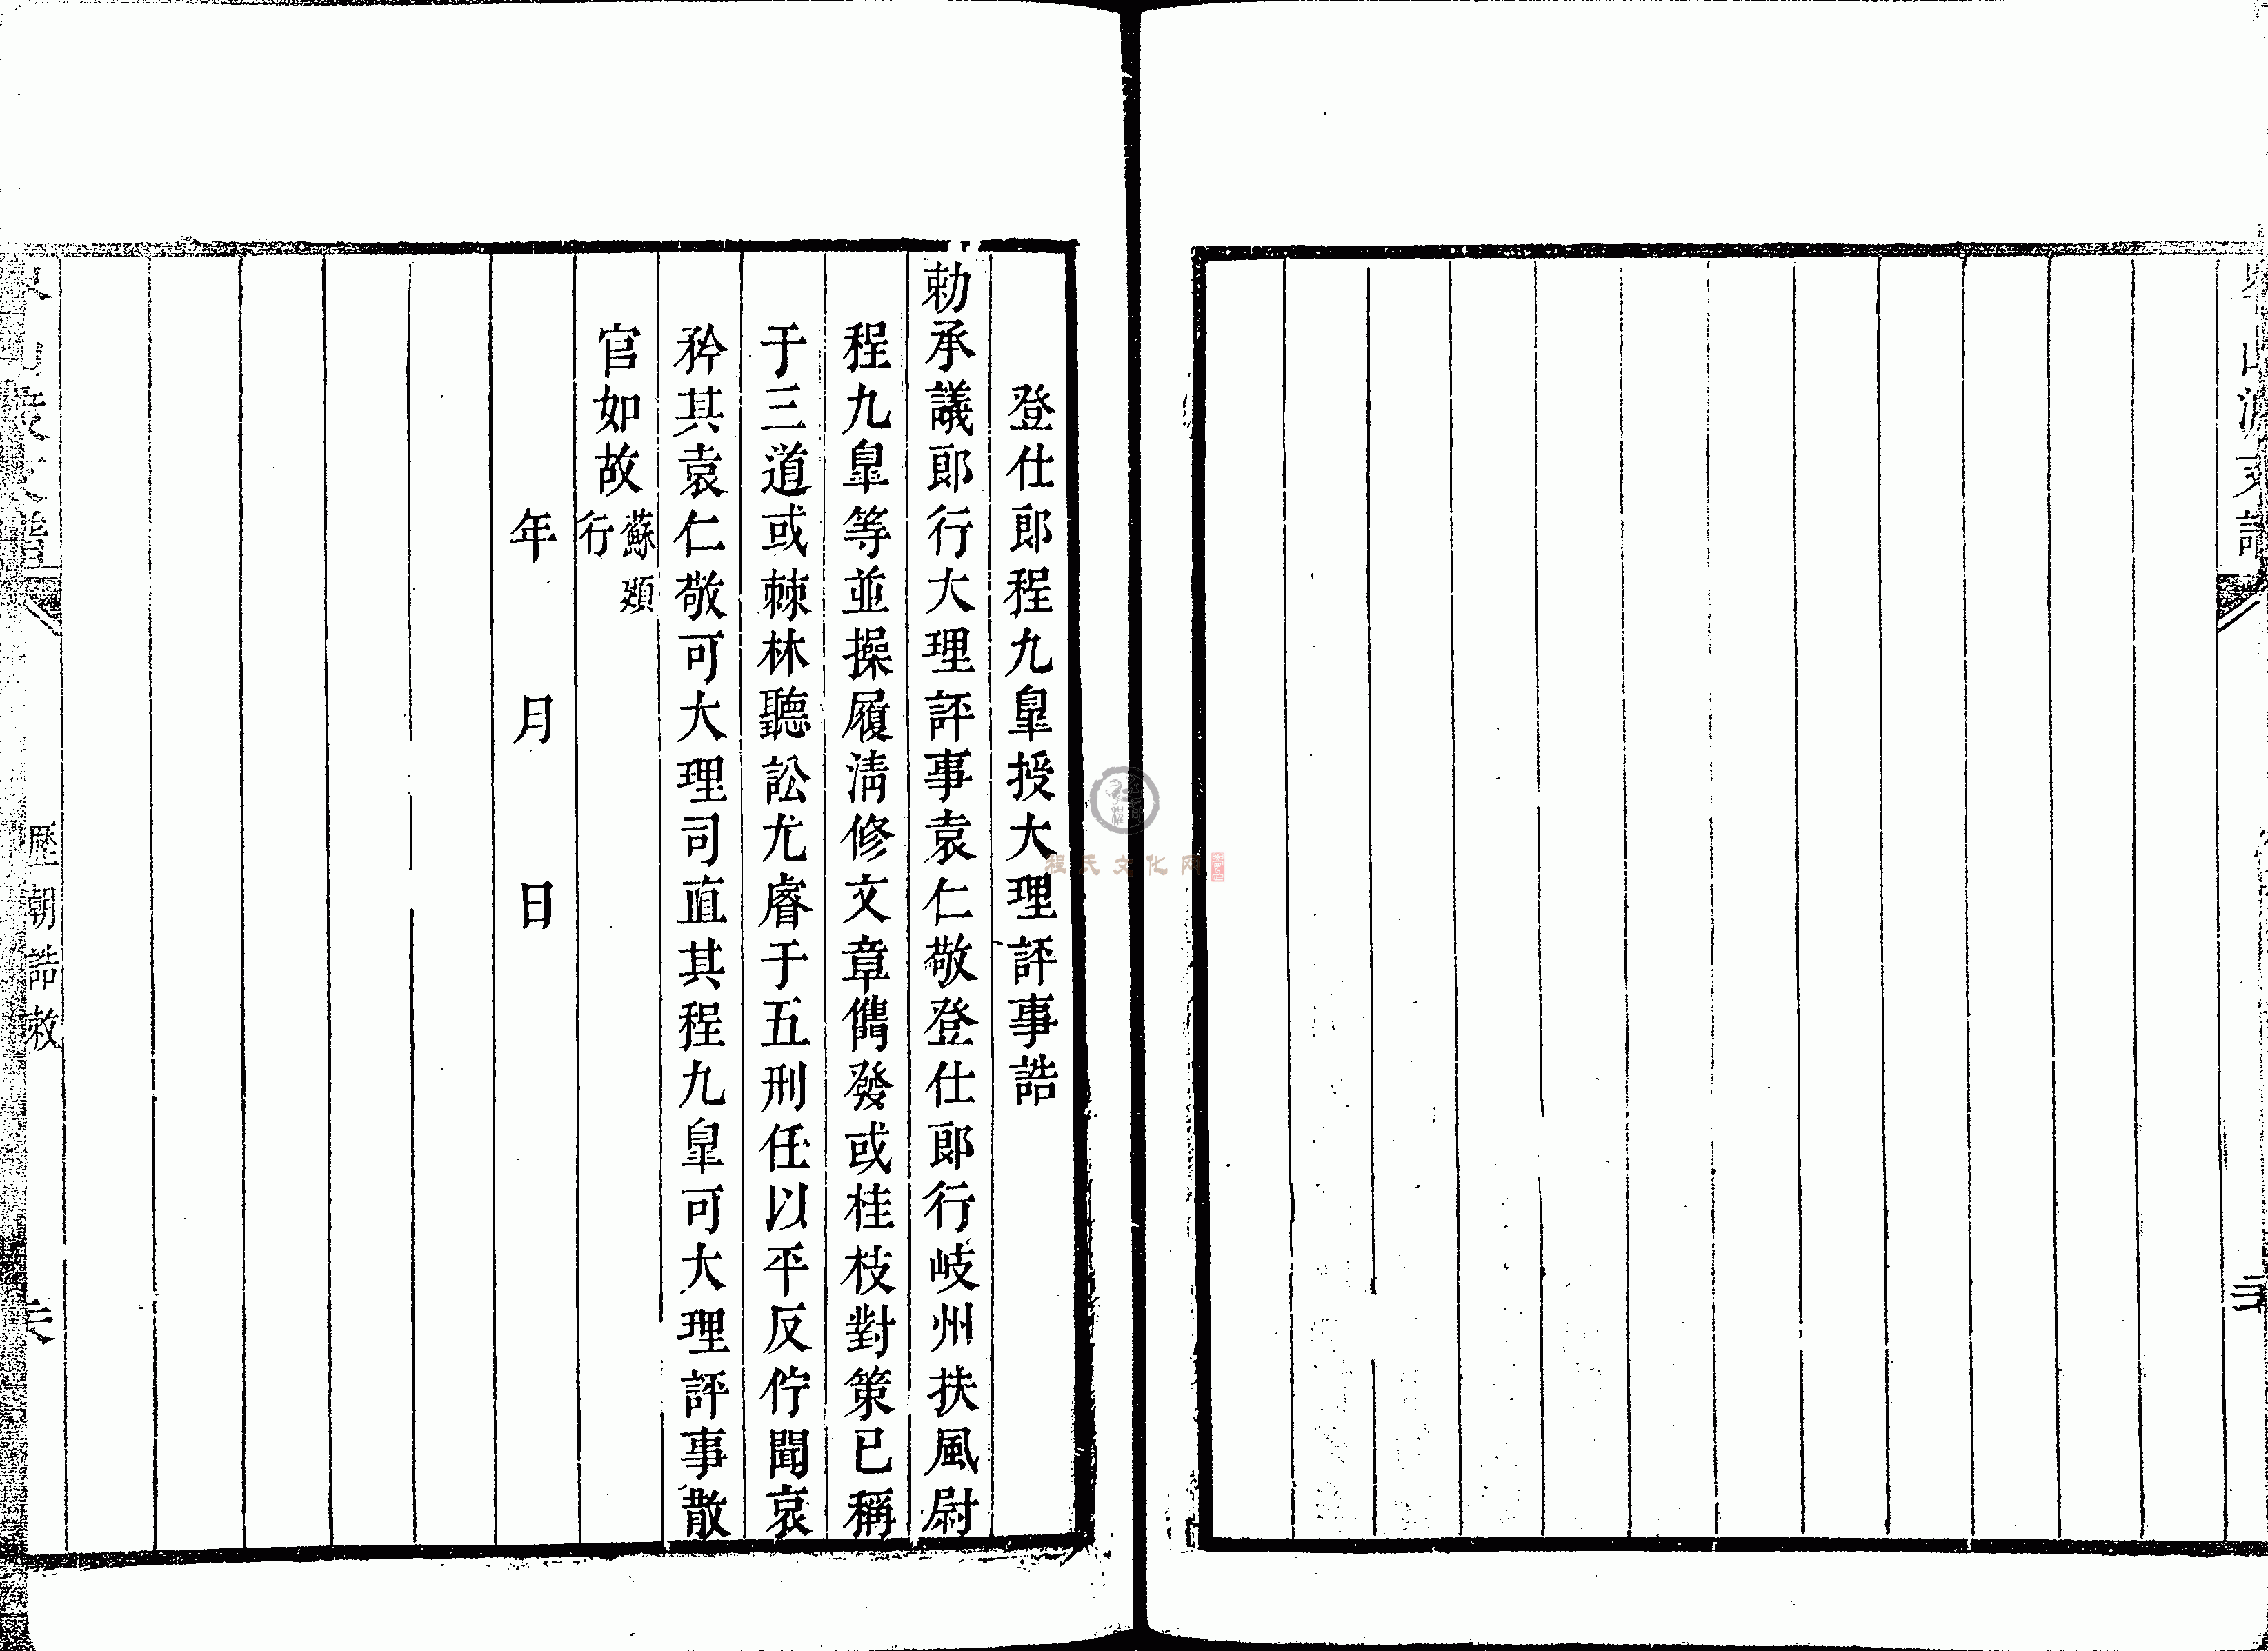 登仕郎程九臯授大理評事誥
勅承議郎行大理評事袁仁敬登仕郎行岐州扶風尉
程九臯等並操履淸修文章儁發或桂枝對策已稱
于三道或棘林聽訟尤睿于五刑任以平反佇聞哀
矜其袁仁敬可大理司直其程九臯可大理評事散
官如故
蘇頲
行
年 月 日
歷朝誥敕
程氏文化网